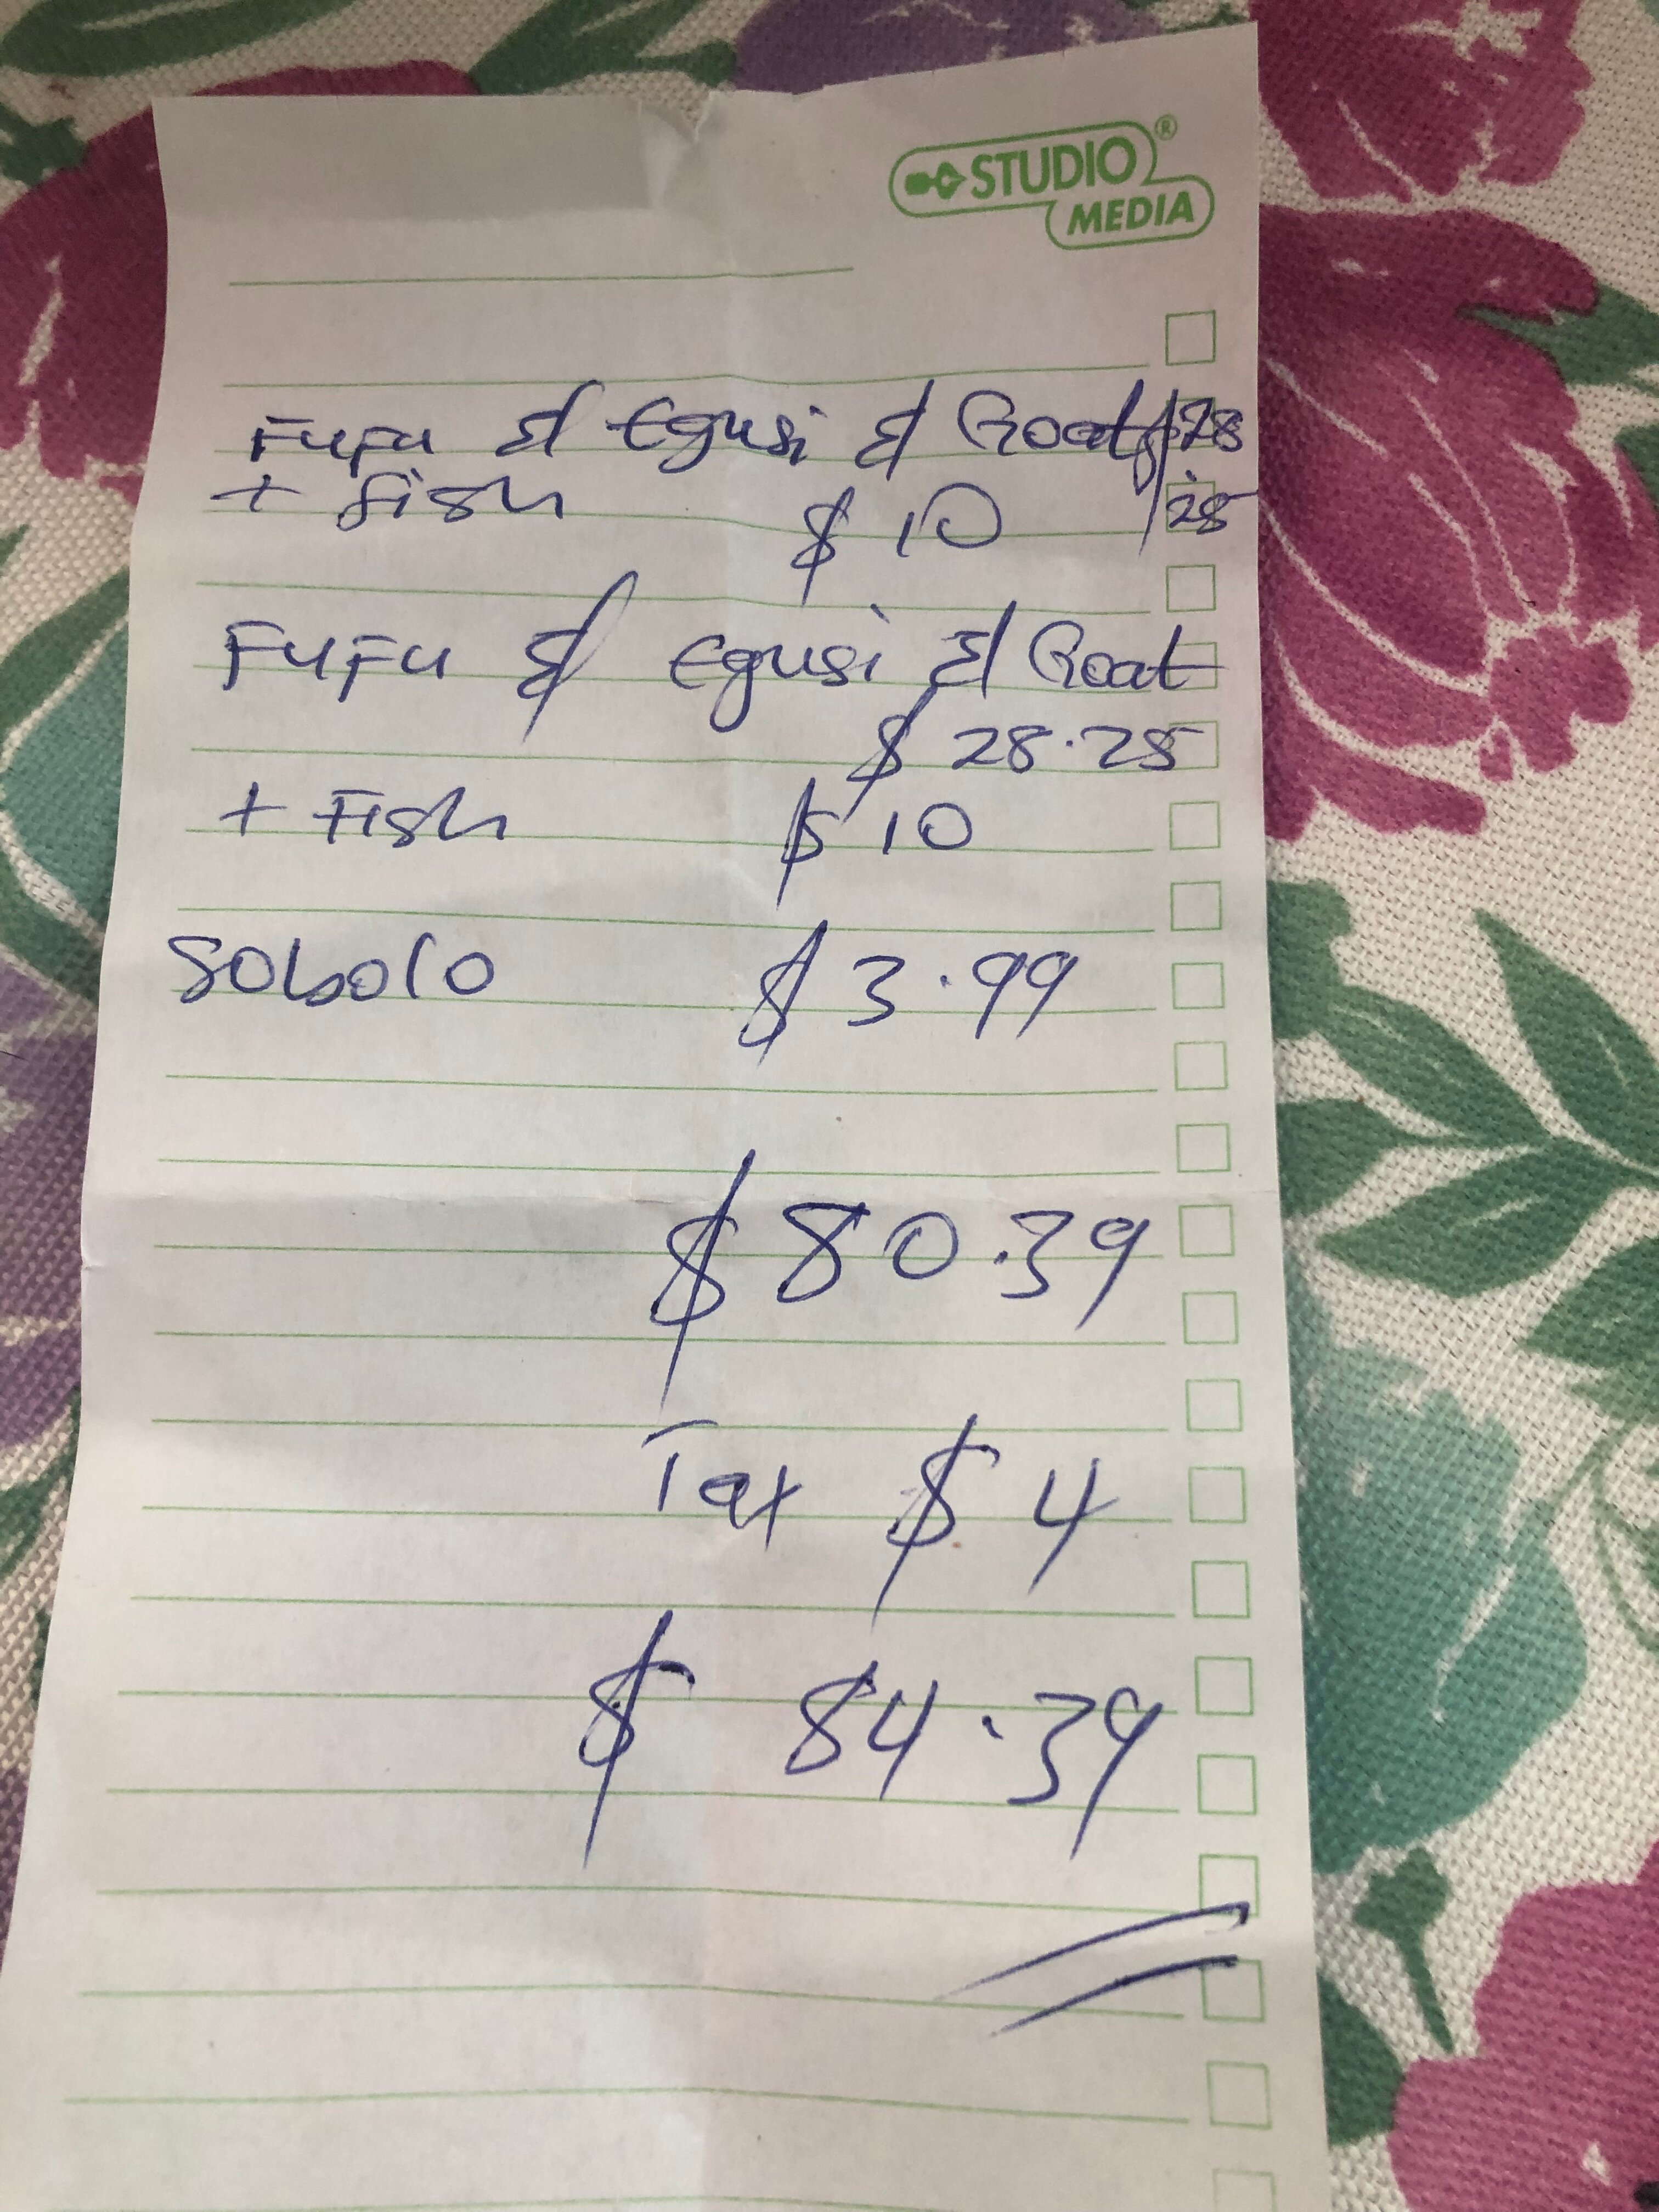 STUDIO®
MEDIA
Fufu & Egusi & Goat $ 28
+ fish $ 10 .28
FUFU & Egusi & Goat
$ 28.25
+ Fish $ 10
Sobolo $ 3.99
$ 80.39
Tax $ 4
$ 84.39